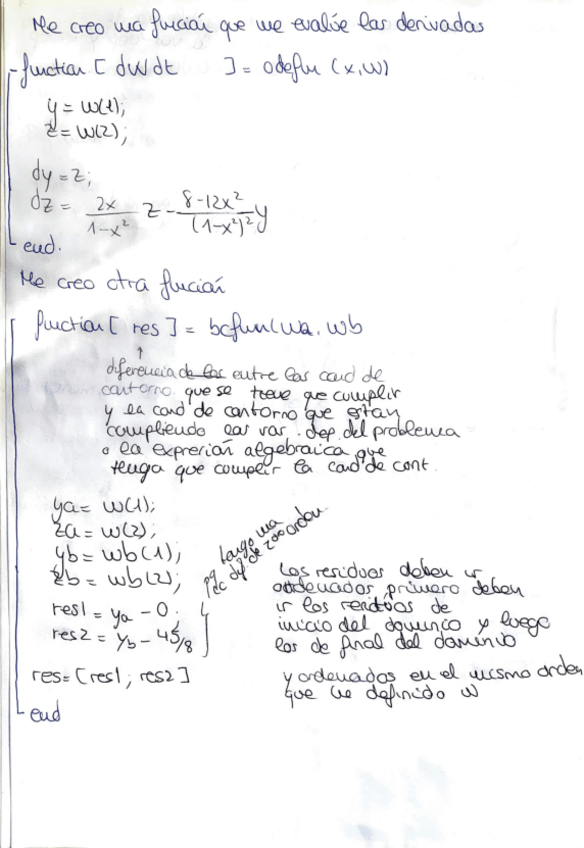 Me creo una función que me evalúe las derivadas
function [ dWdt ] = odefun (x,w)
y = w(1);
z = w(2);
dy = z;
dz = 2x/(1-x²) z - (8-12x²)/(1-x²)² y
end.
Me creo otra función
function [ res ] = bcfun(wa, wb
↑
diferencia de las entre las cond de
contorno que se tiene que cumplir
y la cond de contorno que estan
cumpliendo las var. dep. del problema
o la expresión algebraica que
tenga que cumplir la cond de cont.
ya = w(1);
za = w(2);
yb = wb(1);
zb = wb(2);
res1 = ya - 0
res2 = yb - 45/8
pq tengo una
ec dif de 2do orden
res = [res1; res2]
end
Los residuos deben ir
ordenados primero deben
ir los residuos de
inicio del dominio y luego
los de final del dominio
y ordenados en el mismo orden
que he definido w